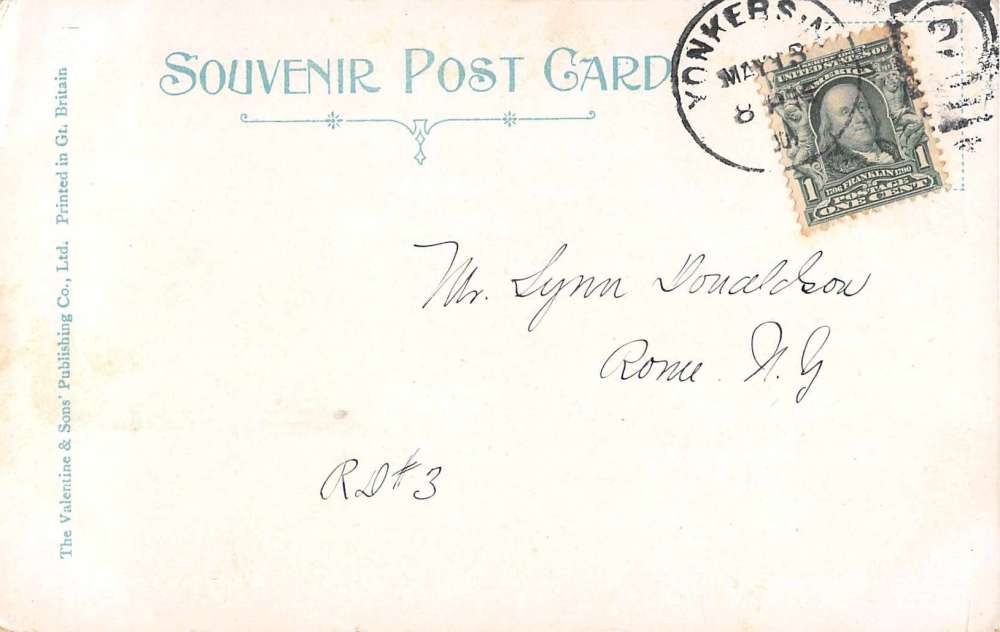 SOUVENIR POST CARD
YONKERS, N.
MAY 13
8
2
SERIES 1902
UNITED STATES OF
AMERICA
1706 FRANKLIN 1790
1 1
POSTAGE
ONE CENT
Mr. Lynn Donaldson
Rome. N. Y
RD # 3
The Valentine & Sons' Publishing Co., Ltd. Printed in Gt. Britain